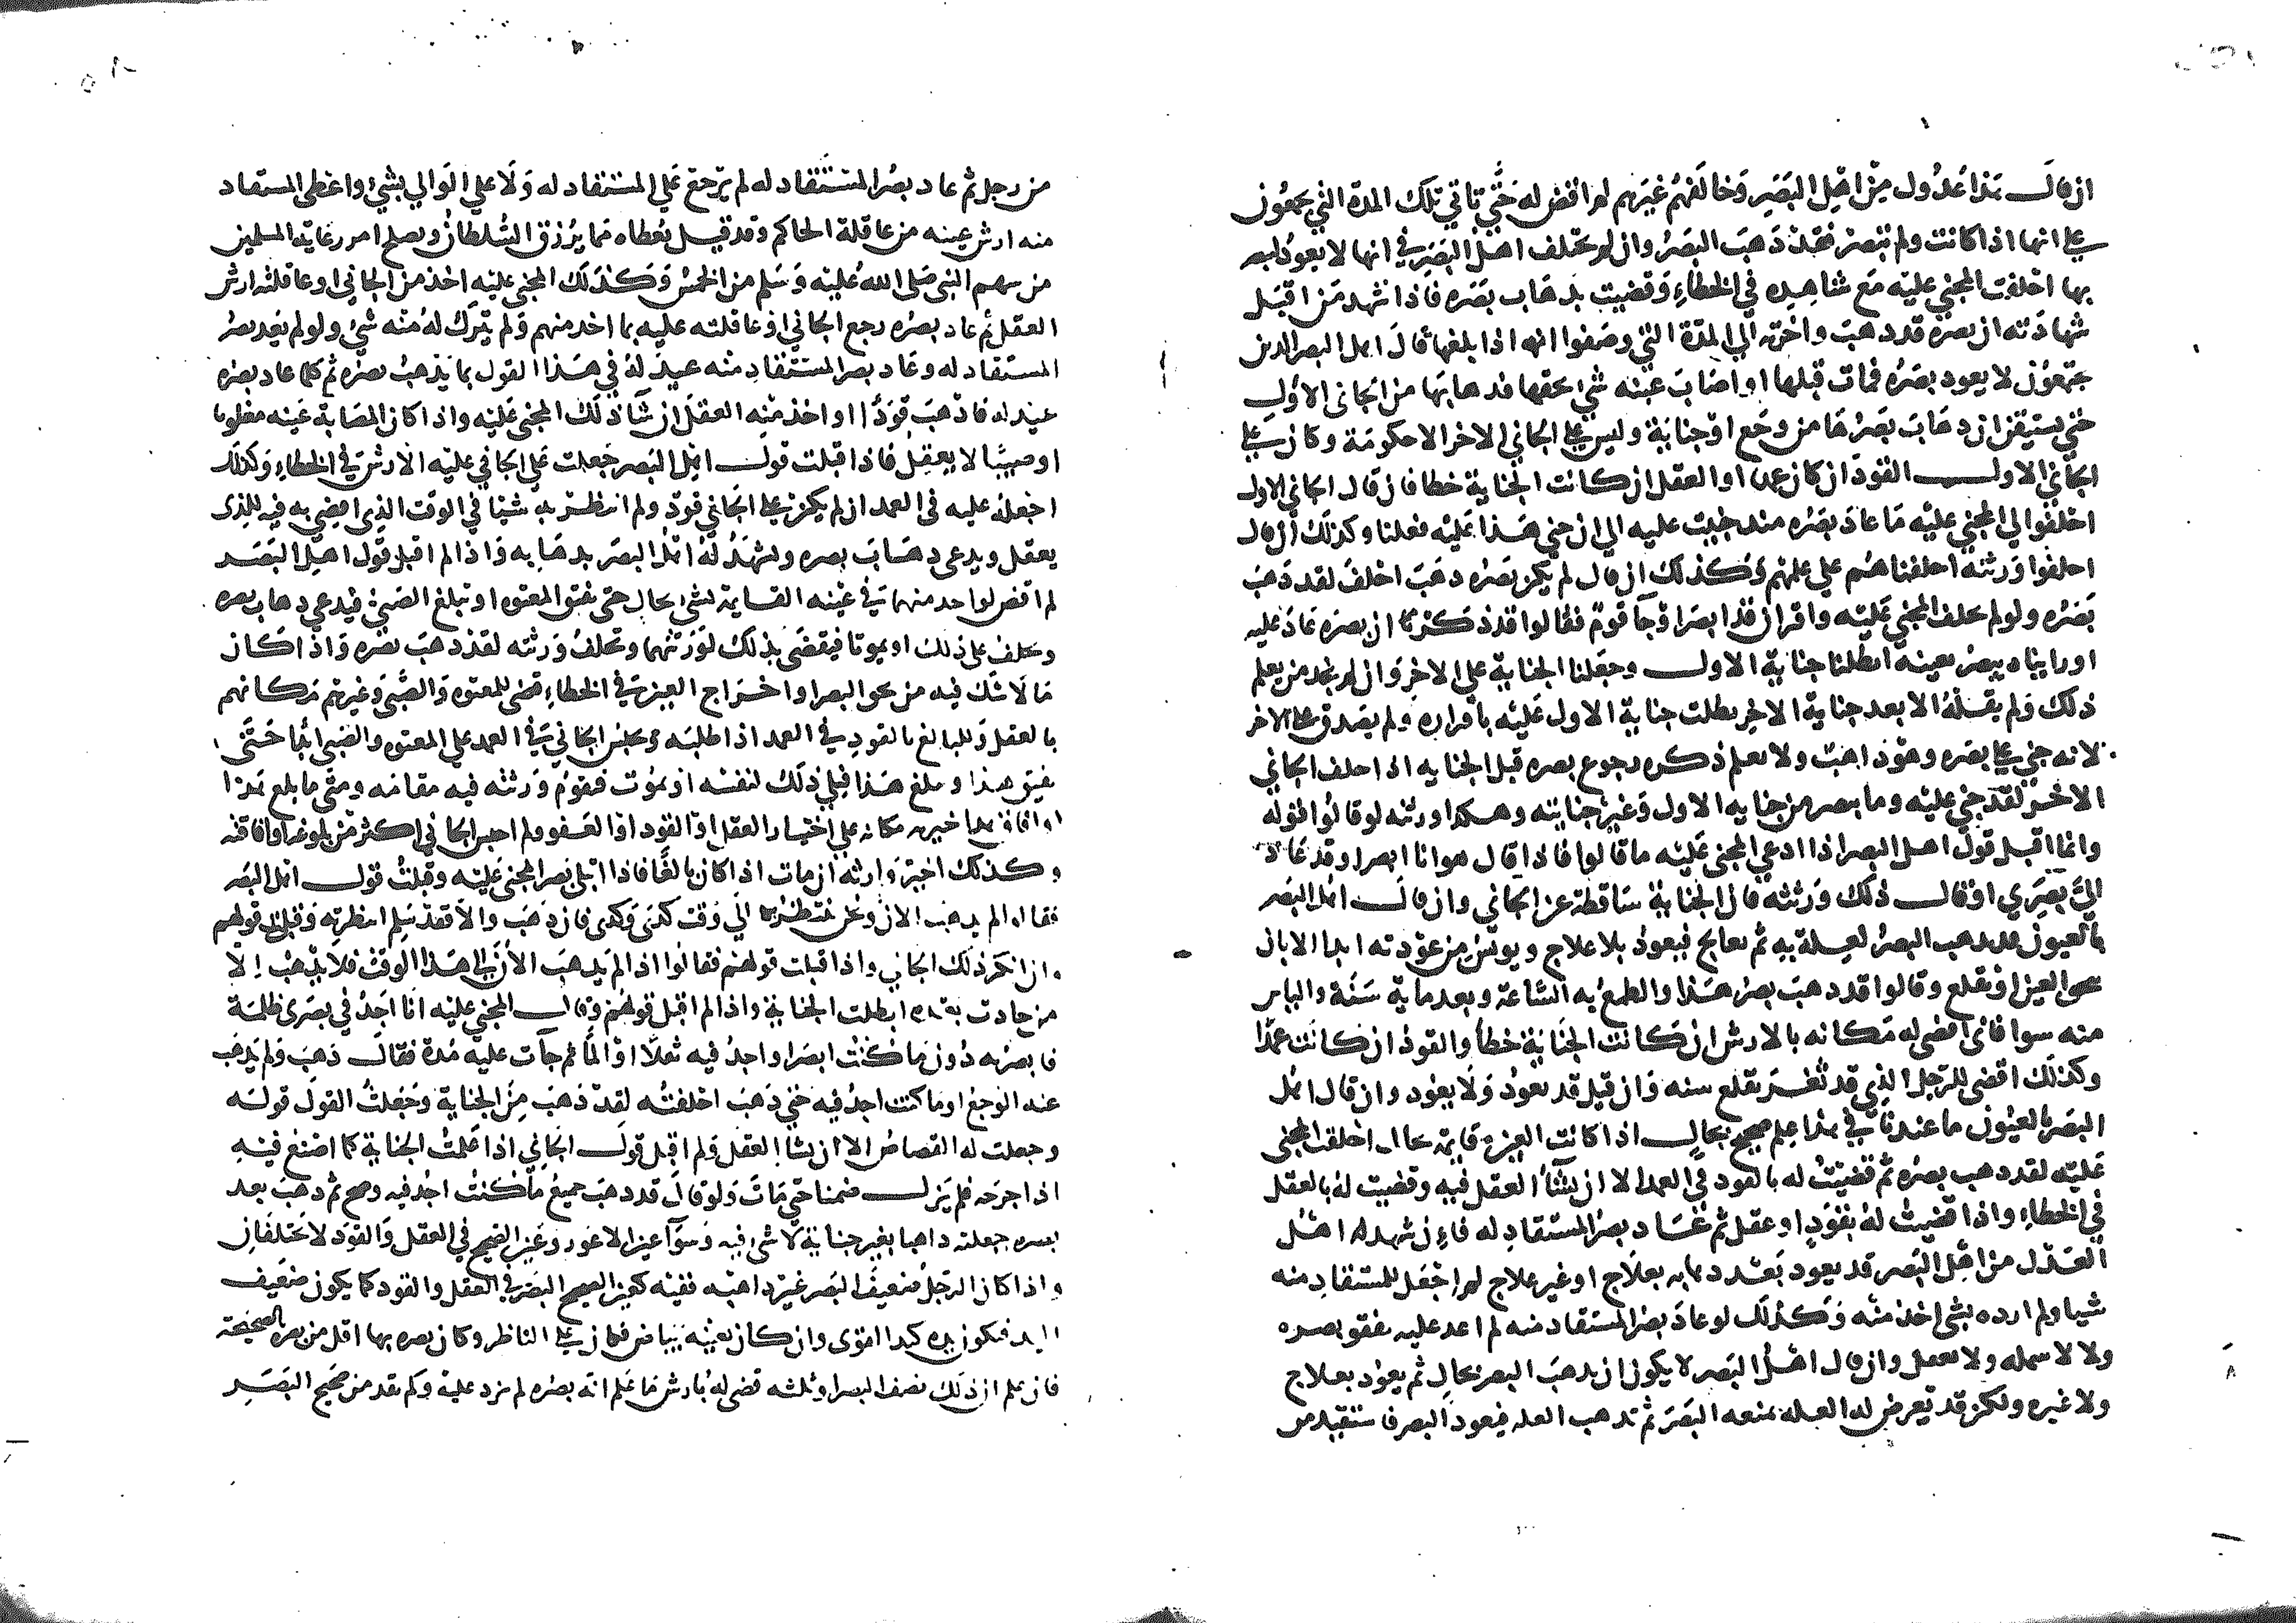 ان قال هذا عدول من اهل البصر وخالفهم غيرهم لم اقض له حتى تاتي تلك المدة التي يجمعون
على انها اذا كانت ولم تبصر فقد ذهب البصر وان لم يختلف اهل البصر في انها لا يعود لبصر
بها احلف المجني عليه مع شاهده في الخطاء وقضيت بذهاب بصره فاذا شهد من اقبل
شهادته ان بصره قد ذهب واخرته الى المدة التي وصفوا انه اذا بلغها قال اهل البصر الذين
يجتمعون لا يعود بصره فمات قبلها او اصاب عينه شي بخقها فذهابها من الجاني الاول
حتى يستيقن ان ذهاب بصرها من وجع او جناية وليس على الجاني الاخر الا حكومة وكان على
الجاني الاول القود ان كان عمدا او العقل ان كانت الجناية خطا فان قال الجاني الاول
احلفوا لي المجني عليه ما عاد بصره منذ جنيت عليه الى ان جنى هذا عليه فعلنا وكذلك ان قال
احلفوا ورثته احلفناهم على علمهم وكذلك ان قال لم يكن بصره ذهب احلف لقد ذهب
بصره ولو لم يحلف المجني عليه واقر ان قد ابصر او جا قوم فقالوا قد ذكر لنا ان بصره عاد عليه
او راينا يبصر بعينه ابطلنا جناية الاول وجعلنا الجناية على الاخر وان لم نجد من يعلم
ذلك ولم يقله الا بعد جناية الاخر بطلت جناية الاول عليه باقراره ولم يصدق على الاخر
لانه جني على بصره وهو ذاهب ولا نعلم ذكره رجوع بصره قبل الجناية اذا حلف الجاني
الاخر لقد جنى عليه وما يبصر من جناية الاول وغير جنايته وهكذا ورثته لو قالوا قوله
وانما اقبل قول اهل البصر اذا ادعى المجني عليه ما قالوا فاذا قال هو انا ابصر او قد عاد
الي بصري او قال ذلك ورثته فان الجناية ساقطة عن الجاني وان قال اهل البصر
بالعيون قد يذهب البصر لعلة به ثم يعالج فيعود بلا علاج ويويس من عودته ابدا الا بان
العين او تقلع وقالوا قد ذهب بصر هذا والطمع به الساعة وبعد ماية سنة والياس
منه سوا فاني اقضي له مكانه بالارش ان كانت الجناية خطا والقود ان كانت عمدا
وكذلك اقضي للرجل الذي قد ثغر بقلع سنه وان قيل قد يعود ولا يعود وان قال اهل
البصر بالعيون ما عندنا في هذا علم صحيح بحال اذا كانت العين قايمة احلف المجني
عليه لقد ذهب بصره ثم قضيت له بالقود في العمد الا ان يشا العقل فيه وقضيت له بالعقل
في الخطاء واذا قضيت له بقود او عقل ثم عاد بصر المستقاد له فان شهد اهل
العدل من اهل البصر قد يعود بعد ذهابه بعلاج او غير علاج لم اجعل للمستقاد منه
شيا ولم ارده بشي اخذ منه وكذلك لو عاد بصر المستقاد منه لم اعد عليه بفقو بصره
ولا لا سمله ولا بعقل وان قال اهل البصر لا يكون ان يذهب البصر بحال ثم يعود بعلاج
ولا غيره ولكن قد تعرض له العلة تمنعه البصر ثم تذهب العلة فيعود البصر فاستقيد من
من رجل ثم عاد بصر المستقاد له لم يرجع على المستقاد له ولا على الوالي بشي واعطى المستقاد
منه ارش عينه من عاقلة الحاكم وقد قيل يعطاه مما يرزق السلطان ويصلح امر رعاية المسلمين
من سهم النبي صلى الله عليه وسلم من الخمس وكذلك المجني عليه اخذ من الجاني او عاقلته ارش
العقل ثم عاد بصره رجع الجاني او عاقلته عليه بما اخذ منهم ولم يترك له منه شي ولو لم يعد بصر
المستقاد له وعاد بصر المستقاد منه عيد له في هذا القول بما يذهب بصره ثم كلما عاد بصره
عيد له فاذهب قودا او اخذ منه العقل ان شا ذلك المجني عليه واذا كان المصابة عينه مغلوبا
او صبيا لا يعقل فاذا قبلت قول اهل البصر جعلت على الجاني عليه الارش في الخطاء وكذلك
اجعله عليه في العمد ان لم يكن على الجاني قود ولم انتظر به شيا في الوقت الذي اقضي به فيه للذي
يعقل ويدعي ذهاب بصره ويشهد له اهل البصر بذهابه واذا لم اقبل قول اهل البصر
لم اقض لواحد منهما في عينه القايمة بشي بحال حتى يفيق المعتوه او يبلغ الصبي فيدعي ذهاب بصره
ويحلف على ذلك او يموتا فيقضى بذلك لورثتهما وتحلف ورثته لقد ذهب بصره واذا كان
ما لا شك فيه من بخق البصر او اخراج العين في الخطاء قضى للمعتوه والصبي وغيرهم مكانهم
بالعقل وللبالغ بالقود في العمد اذا طلبه وحبس الجاني في العمد على المعتوه والصبي ابدا حتى
يفيق هذا ويبلغ هذا فيلي ذلك لنفسه او يموت فتقوم ورثته فيه مقامه ومتى ما بلغ هذا
او افاق هذا خيره مكانه على اختيار العقل او القود او العفو ولم احبس الجاني اكثر من بلوغه او افاقته
وكذلك اخير وارثه ان مات اذا كان بالغا فاذا ابتلي بصر المجني عليه وقبلت قول اهل البصر
فقالوا لم يذهب الان ونحن ننتظر الى وقت كذى وكذى فان ذهب والا فقد سلم انتظرته وقبلت قولهم
وان انكر ذلك الجاني واذا قبلت قولهم فقالوا اذا لم يذهب الان الى هذا الوقت فلا يذهب الا
من حادث بعده ابطلت الجناية واذا لم اقبل قولهم وقال المجني عليه انا اجد في بصري ظلمة
فابصر به دون ما كنت ابصر او اجد فيه ثقلا او الما ثم جات عليه مدة فقال ذهب ولم يذهب
عنه الوجع او ما كنت اجد فيه حتى ذهب احلفته لقد ذهب من الجناية وجعلت القول قوله
وجعلت له القصاص الا ان يشا العقل ولم اقبل قول الجاني اذا علمت الجناية كما اصنع فيه
اذا جرحه فلم يزل ضمنا حتى مات ولو قال قد ذهب جميع ما كنت اجد فيه وصح ثم ذهب بعد
بصره جعلته ذاهبا بغير جناية لا شي فيه وسوا عين الاعور وعين الصحيح في العقل والقود لا تختلفان
واذا كان الرجل ضعيف البصر غير ذاهبه ففيه كعين الصحيح البصر في العقل والقود كما يكون ضعيف
اليد فتكون يده كيد القوى وان كان بعينه بياض فكان على الناظر وكان بصره بها اقل من بصره الصحيحة
فان علم ان ذلك نصف البصر او ثلثه قضى له بارش ما علم انه بصره لم يزد عليه وكم نقد من صحيح البصر